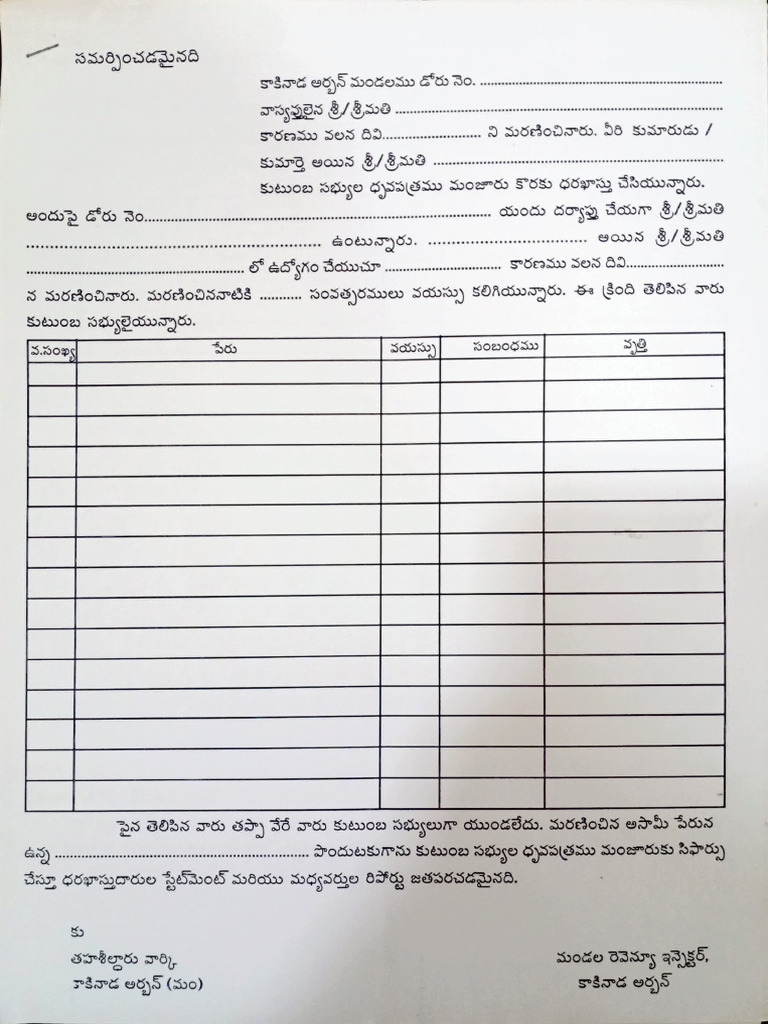 సమర్పించడమైనది
కాకినాడ అర్బన్ మండలము డోరు నెం. ............................................................
వాస్యవ్తులైన శ్రీ/శ్రీమతి ............................................................
కారణము వలన దివి......................... ని మరణించినారు. వీరి కుమారుడు /
కుమార్తె అయిన శ్రీ/శ్రీమతి ............................................................
కుటుంబ సభ్యుల ధృవపత్రము మంజూరు కొరకు ధరఖాస్తు చేసియున్నారు.
అందుపై డోరు నెం............................................................ యందు దర్యాప్తు చేయగా శ్రీ/శ్రీమతి
............................................................ ఉంటున్నారు. ................................. అయిన శ్రీ/శ్రీమతి
............................................................ లో ఉద్యోగం చేయుచూ ............................. కారణము వలన దివి.........................
న మరణించినారు. మరణించిననాటికి ........... సంవత్సరములు వయస్సు కలిగియున్నారు. ఈ క్రింది తెలిపిన వారు
కుటుంబ సభ్యులైయున్నారు.
వ.సంఖ్య పేరు వయస్సు సంబంధము వృత్తి
పైన తెలిపిన వారు తప్పా వేరే వారు కుటుంబ సభ్యులుగా యుండలేదు. మరణించిన అసామీ పేరున
ఉన్న ............................................................ పొందుటకుగాను కుటుంబ సభ్యుల ధృవపత్రము మంజూరుకు సిఫార్సు
చేస్తూ ధరఖాస్తుదారుల స్టేట్‌మెంట్ మరియు మధ్యవర్తుల రిపోర్టు జతపరచడమైనది.
కు
తహశీల్దారు వార్కి మండల రెవెన్యూ ఇన్సెక్టర్,
కాకినాడ అర్బన్ (మం) కాకినాడ అర్బన్